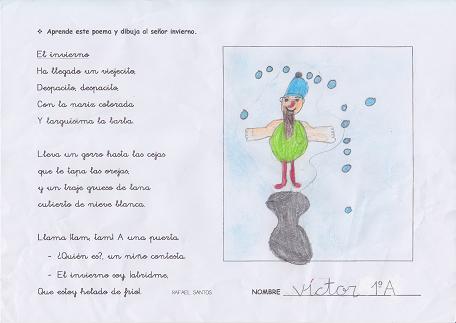 ❖ Aprende este poema y dibuja al señor invierno.
El invierno
Ha llegado un viejecito,
Despacito, despacito,
Con la nariz colorada
Y larguísima la barba.
Lleva un gorro hasta las cejas
que le tapa las orejas,
y un traje grueso de lana
cubierto de nieve blanca.
Llama ¡tam, tam! A una puerta
- ¿Quién es?, un niño contesta
- El invierno soy, abridme,
Que estoy helado de frío!.
RAFAEL SANTOS
NOMBRE víctor 1ºA